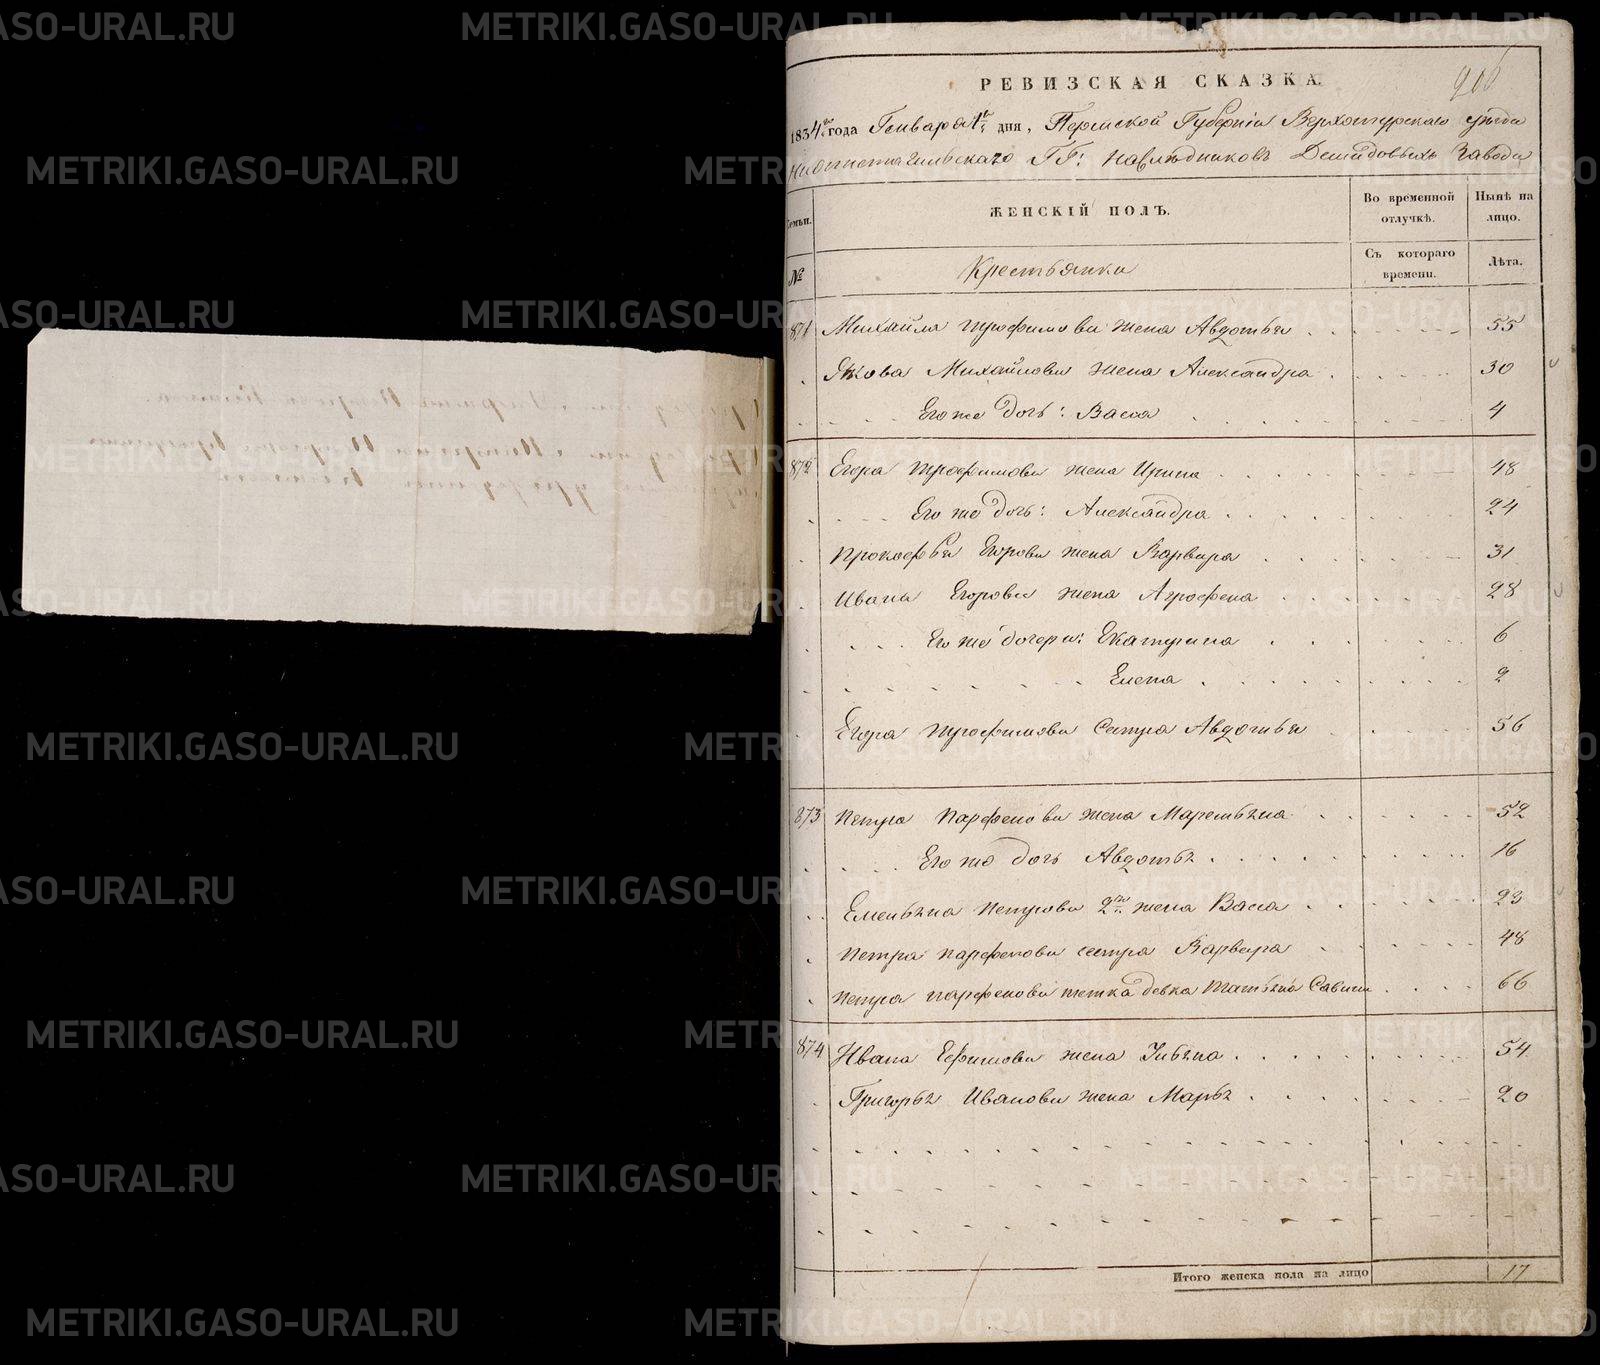 РЕВИЗСКАЯ СКАЗКА.
906
1834го года Генваря 1го дня, Пермской Губерніи Верхотурскаго уѣзда
Нижнетагильскаго ГГ: Наслѣдниковъ Демидовыхъ Завода
Семьи.
ЖЕНСКІЙ ПОЛЪ.
Во временной отлучкѣ.
Нынѣ на лицо.
№
Крестьянки
Съ котораго времени.
Лѣта.
871 Михайла Трофимова жена Авдотья 55
Якова Михайлова жена Александра 30
Его же дочь: Васса 4
872 Егора Трофимова жена Ирина 48
Его же дочь: Александра 24
Прокофья Егорова жена Варвара 31
Ивана Егорова жена Агрофена 28
Его же дочери: Екатерина 6
Елена 2
Егора Трофимова сестра Авдотья 56
873 Петра Парфенова жена Маремьяна 52
Его же дочь Авдотья 16
Емельяна Петрова 2я жена Васса 23
Петра Парфенова сестра Варвара 48
Петра Парфенова тетка девка Татьяна Савина 66
874 Ивана Ефимова жена Ульяна 54
Григорья Иванова жена Марья 20
Итого женска пола на лицо 17
METRIKI.GASO-URAL.RU